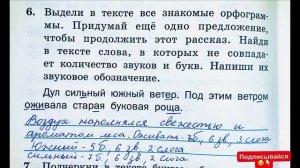 6. Выдели в тексте все знакомые орфограм-
мы. Придумай ещё одно предложение,
чтобы продолжить этот рассказ. Найди
в тексте слова, в которых не совпада-
ет количество звуков и букв. Напиши их
звуковое обозначение.
Дул сильный южный ветер. Под этим ветром
оживала старая буковая роща.
Воздух наполнялся свежестью и
ароматом леса. 7б, 6 зв, 3 слога
Южный - 5б, 6 зв, 2 слога
сильный - 7б, 6 зв, 2 слога
Подписывайся